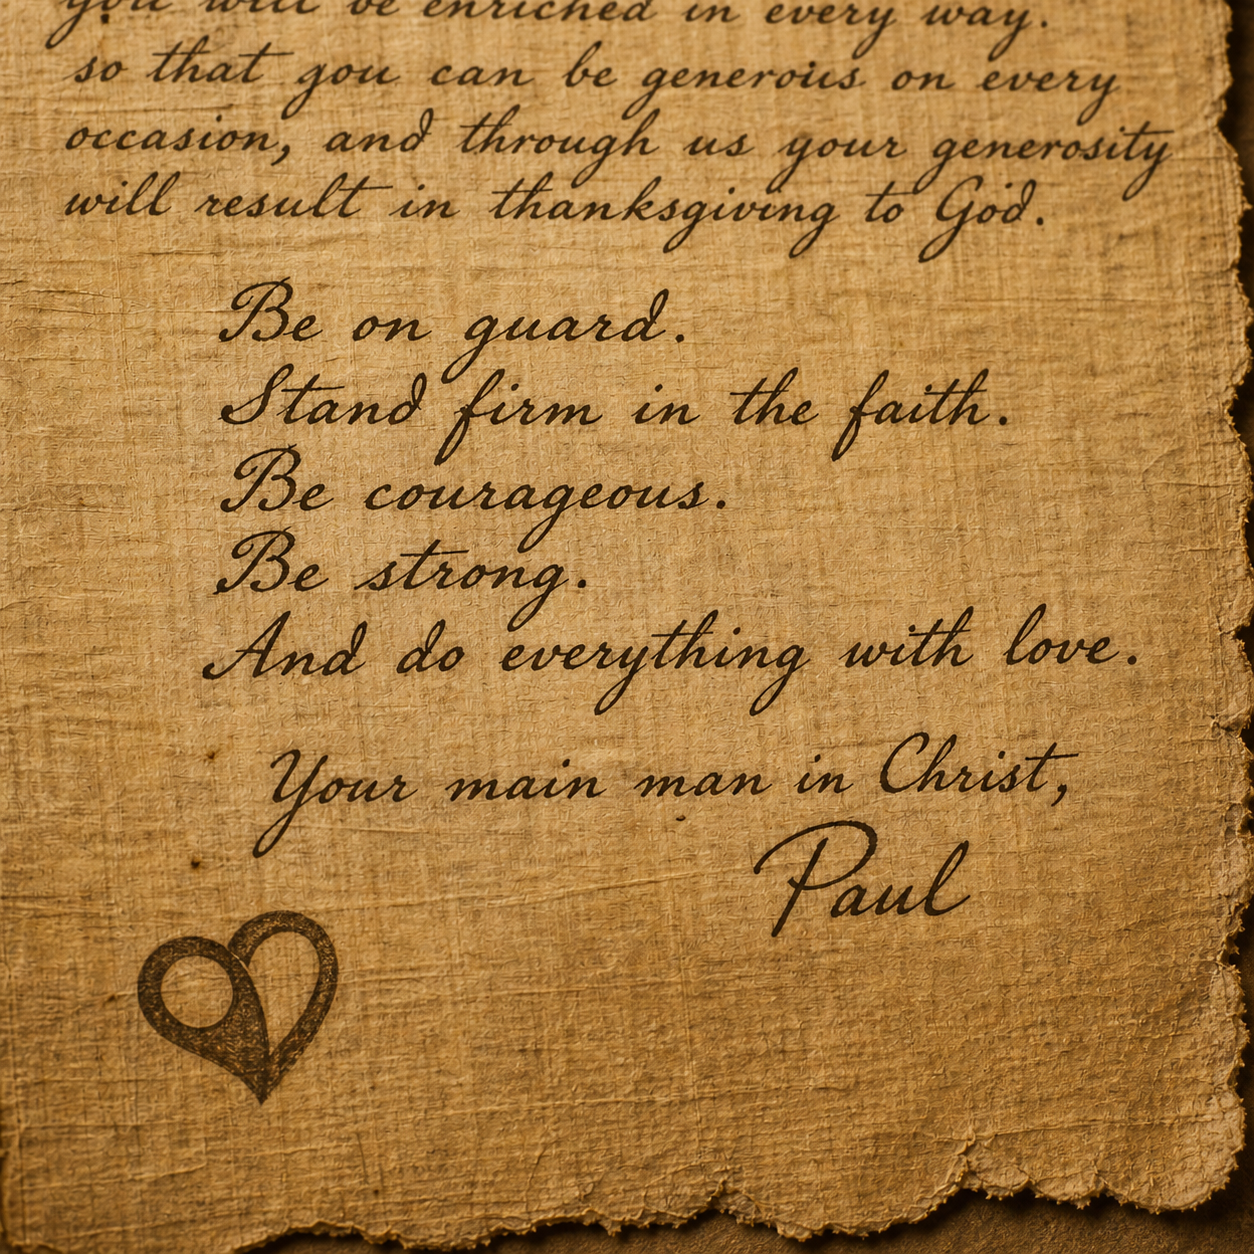 you will be enriched in every way.
so that you can be generous on every
occasion, and through us your generosity
will result in thanksgiving to God.
Be on guard.
Stand firm in the faith.
Be courageous.
Be strong.
And do everything with love.
Your main man in Christ,
Paul